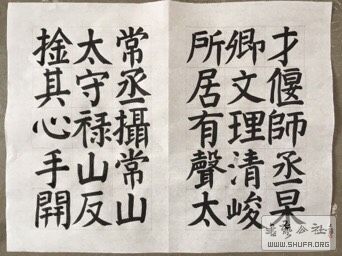 才偃師丞杲
卿文理清峻
所居有聲太
常丞攝常山
太守禄山反
捦其心手開
WWW.SHUFA.ORG